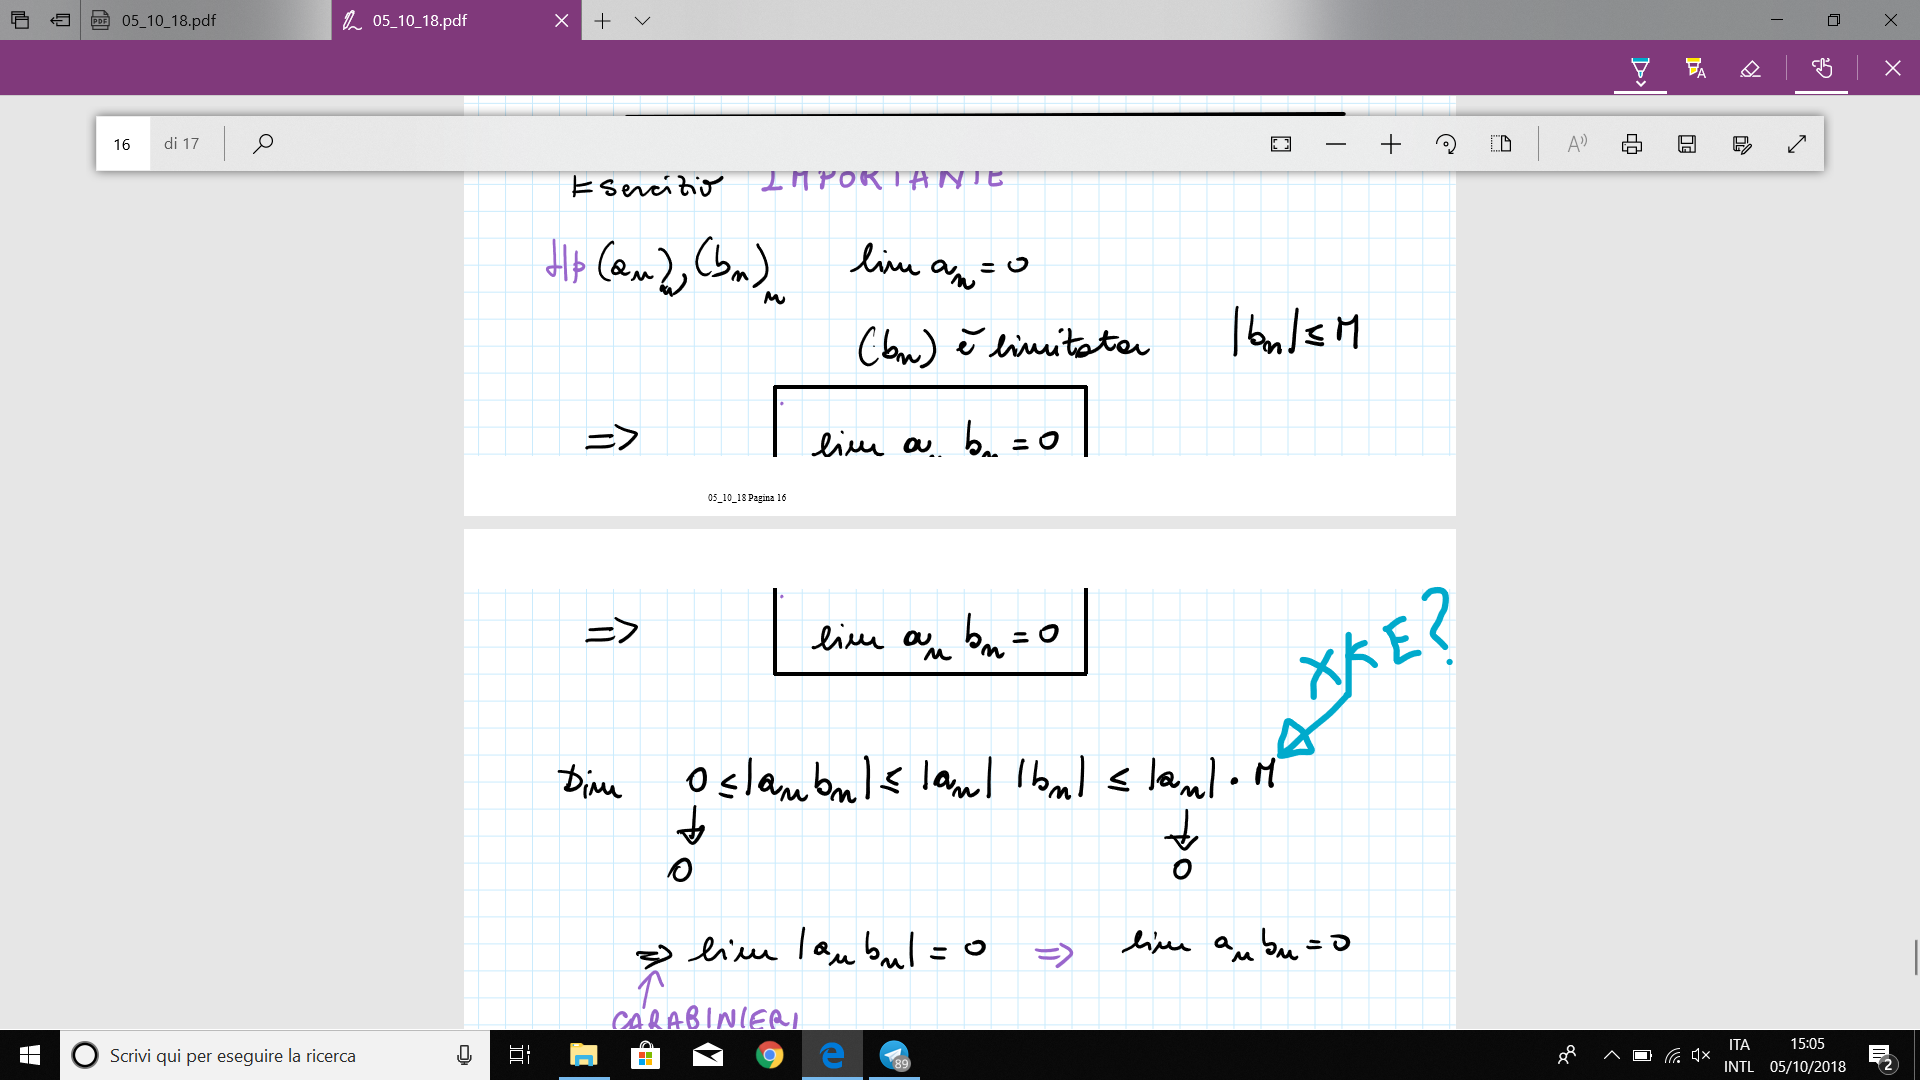 05_10_18.pdf
05_10_18.pdf
16 di 17
Esercizio IMPORTANTE
Hp (aₙ)ₙ, (bₙ)ₙ lim aₙ = 0
(bₙ) è limitata |bₙ| ≤ M
=> lim aₙ bₙ = 0
05_10_18 Pagina 16
=> lim aₙ bₙ = 0
XKE?
Dim 0 ≤ |aₙ bₙ| ≤ |aₙ| |bₙ| ≤ |aₙ| · M
↓ ↓
0 0
=> lim |aₙ bₙ| = 0 => lim aₙ bₙ = 0
↑
CARABINIERI
Scrivi qui per eseguire la ricerca
89
ITA
INTL
15:05
05/10/2018
2